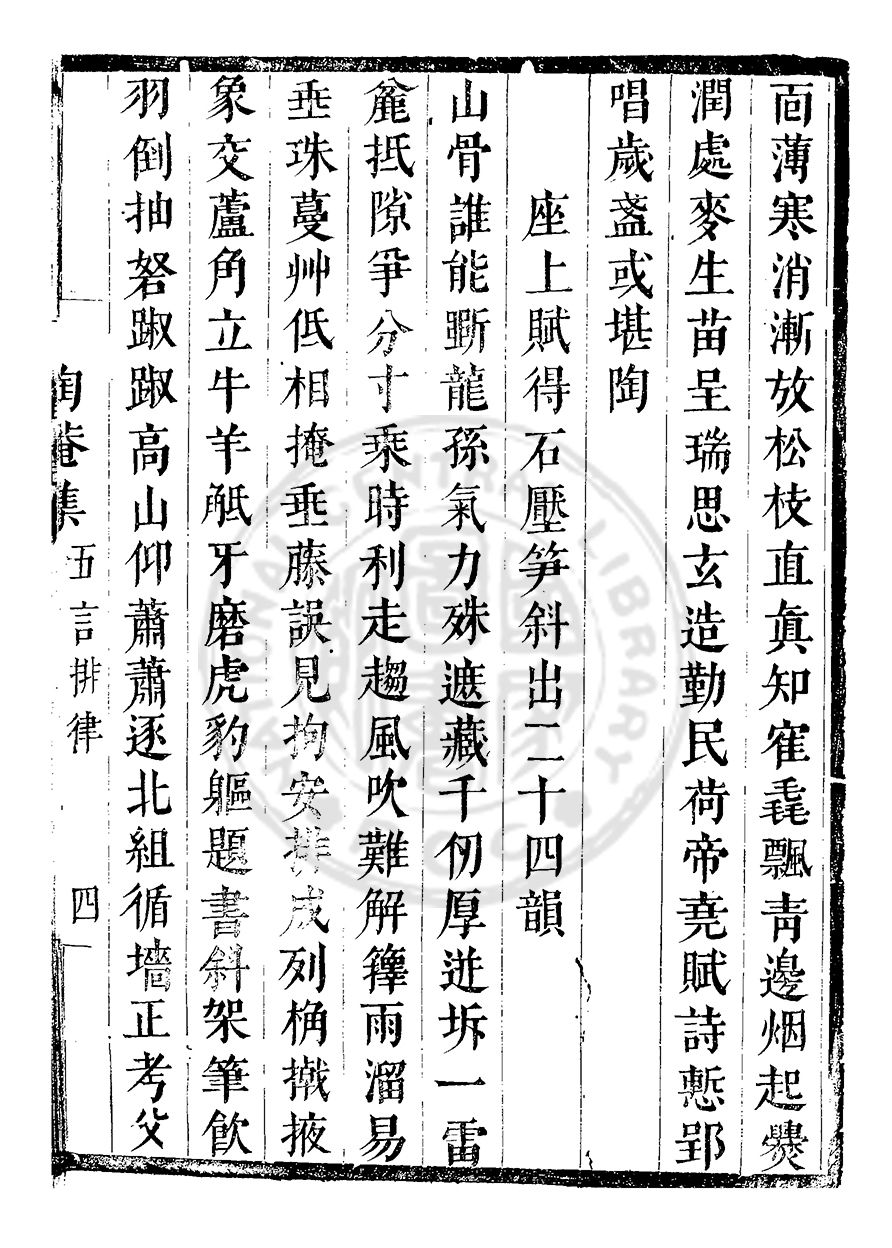 靣薄寒消漸放松枝直眞知寉毳飄靑邊烟起爨
潤處麥生苗呈瑞思玄造勤民荷帝堯賦詩慙郢
唱歲盞或堪陶
座上賦得石壓笋斜出二十四韻
山骨誰能斲龍孫氣力殊遮藏千仞厚迸坼一雷
麄抵隙爭分寸乘時利走趨風吹難解籜雨溜易
垂珠蔓艸低相掩垂藤誤見拘安排成列桷撠掖
象交蘆角立牛羊觝牙磨虎豹軀題書斜架筆飮
羽倒抽弩踧踧高山仰蕭蕭逐北組循墻正考父
陶菴集 五言排律 四